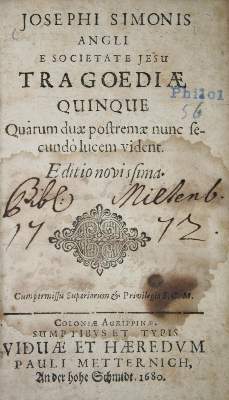 JOSEPHI SIMONIS
ANGLI
E SOCIETATE JESU
TRAGOEDIÆ
QUINQUE
Philol
56
Quarum duæ postremæ nunc se-
cundò lucem vident.
Editio novissima.
Bibl. Miltenb.
17 72.
Cum permissu Superiorum & Privilegio S. C. M.
COLONIÆ AGRIPPINÆ,
SUMPTIBUS ET TYPIS
VIDUÆ ET HÆREDUM
PAULI METTERNICH,
An der hohe Schmidt. 1680.